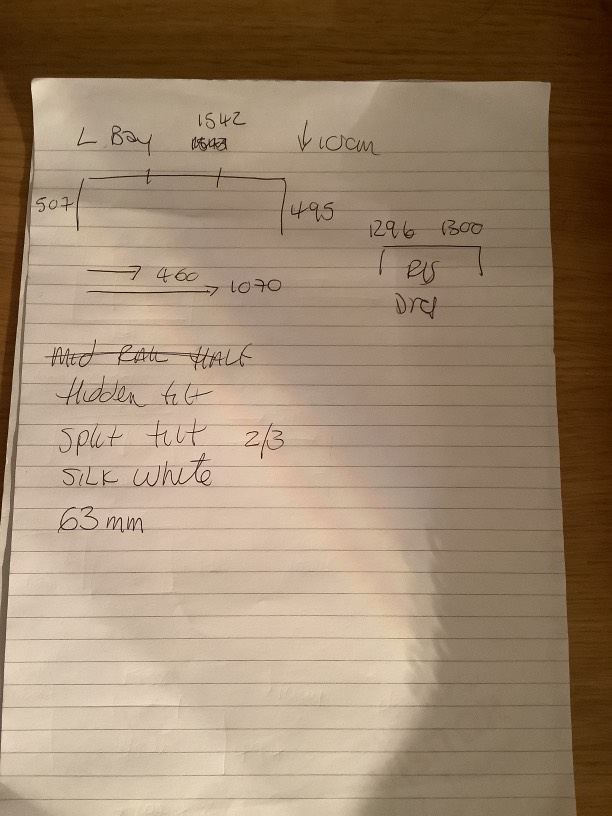 1542
L Bay ↓10cm
507 495
1296 1300
→ 460
→ 1070
Mid RAIL HALF
Hidden tilt
Split tilt 2/3
SILK White
63mm